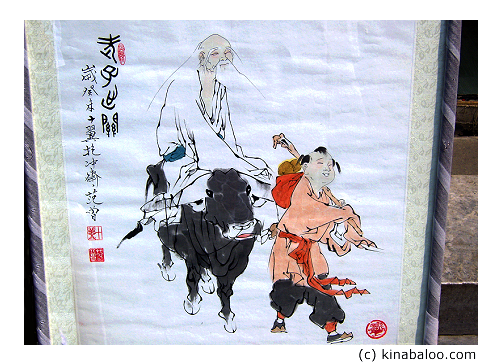 老子出關
歲癸未十翼抱冲齋范曾
(c) kinabaloo.com